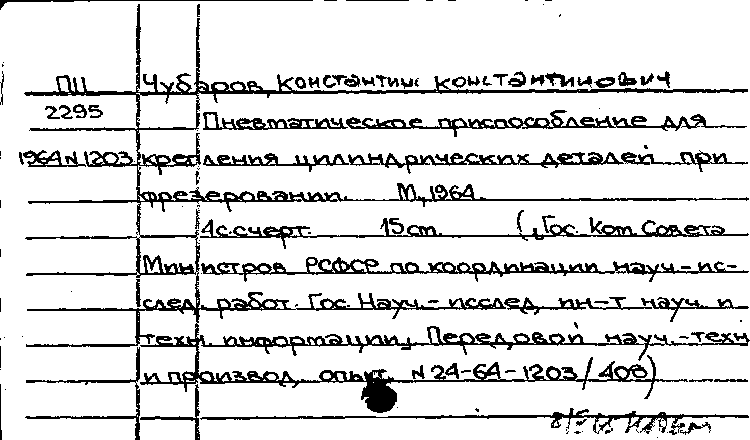 ПЦ Чубаров, Константин Константинович
2295 Пневматическое приспособление для
1964 N 1203 крепления цилиндрических деталей при
фрезеровании. М., 1964.
4 с. с черт. 15 см. (Гос. Ком. Совета
Министров РСФСР по координации науч.-ис-
след. работ. Гос. Науч.-исслед. ин-т науч. и
техн. информации. Передовой науч.-техн
и производ. опыт. N 24-64-1203/408)